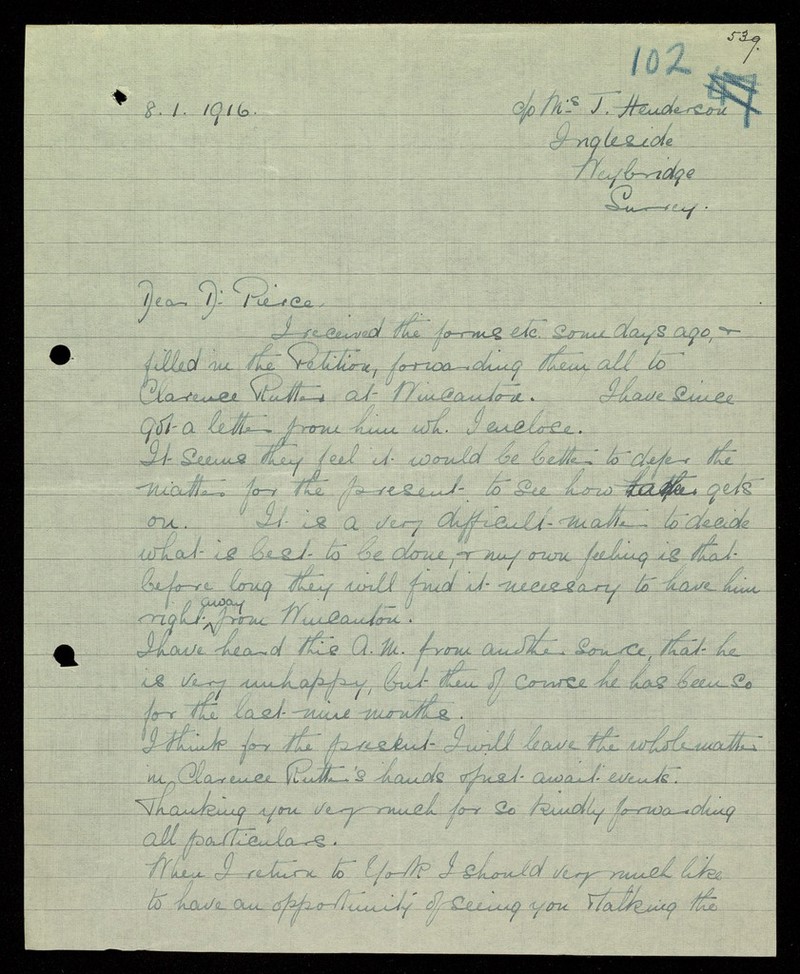 539.
102
8. 1. 1916.
c/o Mrs J. Henderson
Ingleside
Weybridge
Surrey.
Dear Dr Pierce.
I received the forms etc. some days ago, &
filled in the Petition, forwarding them all to
Clarence Rutter at Wincanton. I have since
got a letter from him wh. I enclose.
It seems they feel it would be better to defer the
matter for the present to see how gets
on. It is a very difficult matter to decide
what is best to be done, & my own feeling is that
before long they will find it necessary to have him
right away from Wincanton.
I have heard this A.M. from another source, that he
is very unhappy, but then of course he has been so
for the last nine months.
I think for the present I will leave the whole matter
in Clarence Rutter's hands & just await events.
Thanking you very much for so kindly forwarding
all particulars.
When I return to York I should very much like
to have an opportunity of seeing you & talking the